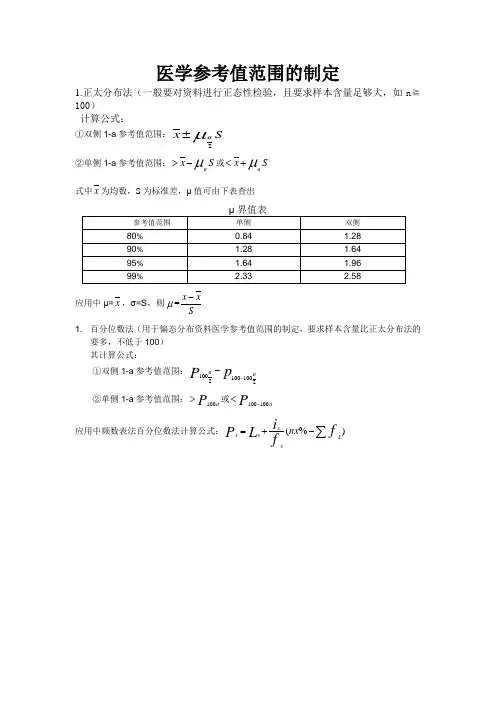 医学参考值范围的制定
1.正太分布法（一般要对资料进行正态性检验，且要求样本含量足够大，如 n≧
100）
计算公式：
①双侧 1-a 参考值范围：$\overline{x} \pm \mu_{\frac{a}{2}} S$
②单侧 1-a 参考值范围：$> \overline{x} - \mu_a S$ 或 $< \overline{x} + \mu_a S$
式中 $\overline{x}$ 为均数，S 为标准差，μ 值可由下表查出
μ 界值表
参考值范围 单侧 双侧
80% 0.84 1.28
90% 1.28 1.64
95% 1.64 1.96
99% 2.33 2.58
应用中 μ=$\overline{x}$，σ=S，则 $\mu = \frac{x - \overline{x}}{S}$
1. 百分位数法（用于偏态分布资料医学参考值范围的制定，要求样本含量比正太分布法的
要多，不低于 100）
其计算公式：
①双侧 1-a 参考值范围：$P_{100\frac{a}{2}} - p_{100-100\frac{a}{2}}$
②单侧 1-a 参考值范围：$> P_{100a}$ 或 $< P_{100-100a}$
应用中频数表法百分位数法计算公式：$P_x = L_x + \frac{i_x}{f_x}(nx\% - \sum f_L)$